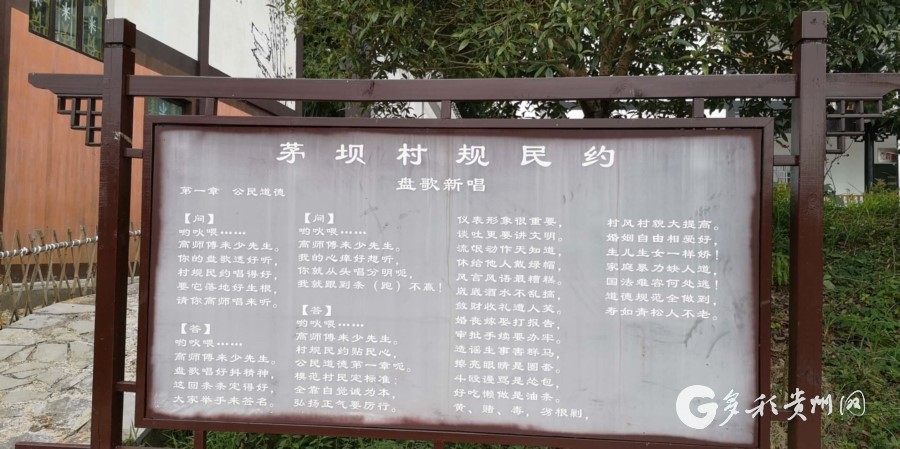 茅坝村规民约
盘歌新唱
第一章 公民道德
【问】
哟吙喂……
高师傅来少先生。
你的盘歌逗好听,
村规民约唱得好,
要它落地好生根,
请你高师唱来听。
【答】
哟吙喂……
高师傅来少先生。
盘歌唱好抖精神,
这回条条定得好,
大家举手来签名。
【问】
哟吙喂……
高师傅来少先生。
我的心痒好想听,
你就从头唱分明呃,
我就跟到条(跑)不赢!
【答】
哟吙喂……
高师傅来少先生。
村规民约贴民心,
公民道德第一章呃。
模范村民定标准!
全靠自觉诚为本,
弘扬正气要厉行。
仪表形象很重要,
谈吐更要讲文明。
流氓动作天知道,
休给他人戴绿帽,
风言风语最糟糕。
歪歪酒水不乱搞,
敛财收礼遭人笑。
婚丧嫁娶打报告,
审批手续要办牢。
造谣生事害群马,
擦亮眼睛是圈套。
斗殴谩骂是怂包,
好吃懒做是油条。
黄、赌、毒,穷根剩,
村风村貌大提高。
婚姻自由相爱好,
生儿生女一样娇!
家庭暴力缺人道,
国法难容何处逃!
道德规范全做到,
寿如青松人不老。
多彩贵州网